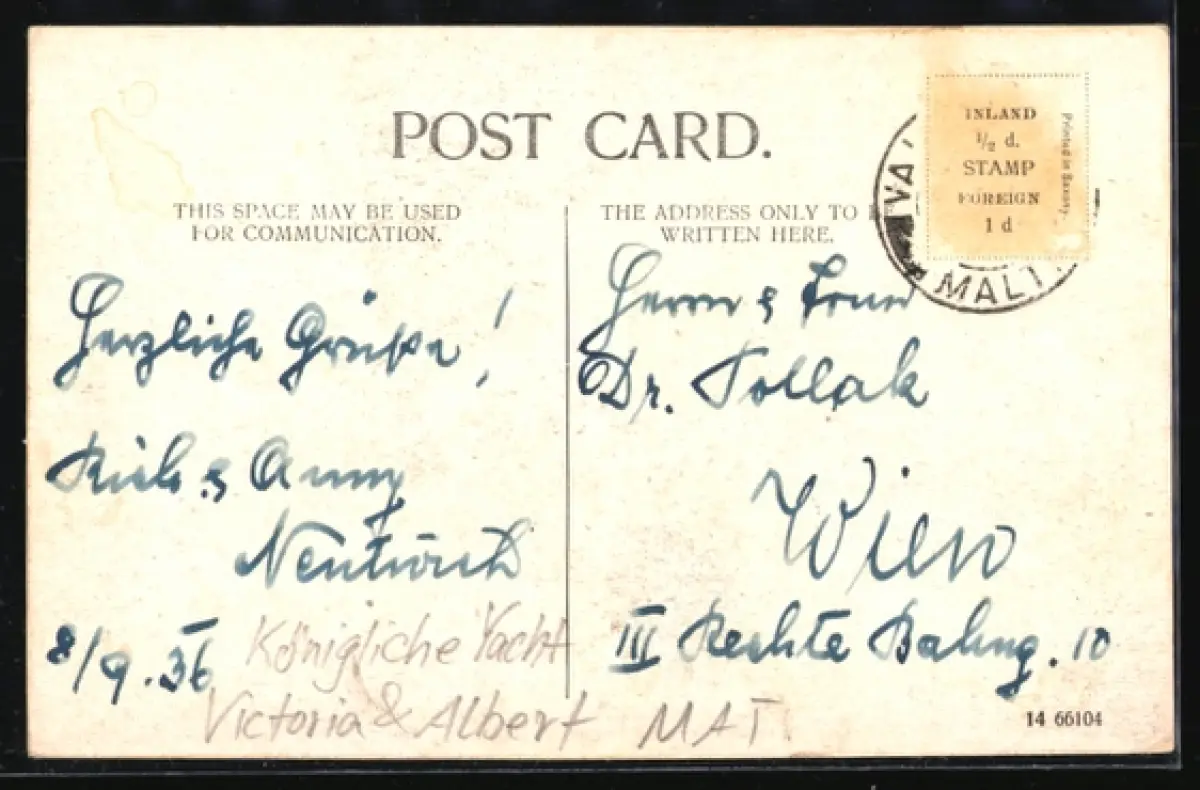 POST CARD.
THIS SPACE MAY BE USED
FOR COMMUNICATION.
THE ADDRESS ONLY TO
WRITTEN HERE.
INLAND
½ d.
STAMP
FOREIGN
1 d
Printed in Saxony.
VA
MALT
Herzliche Grüße!
& Anny
8/9.36
Herrn & Frau
Dr. Pollak
Wien
III Rechte Bahng. 10
Königliche Yacht
Victoria & Albert
14 66104